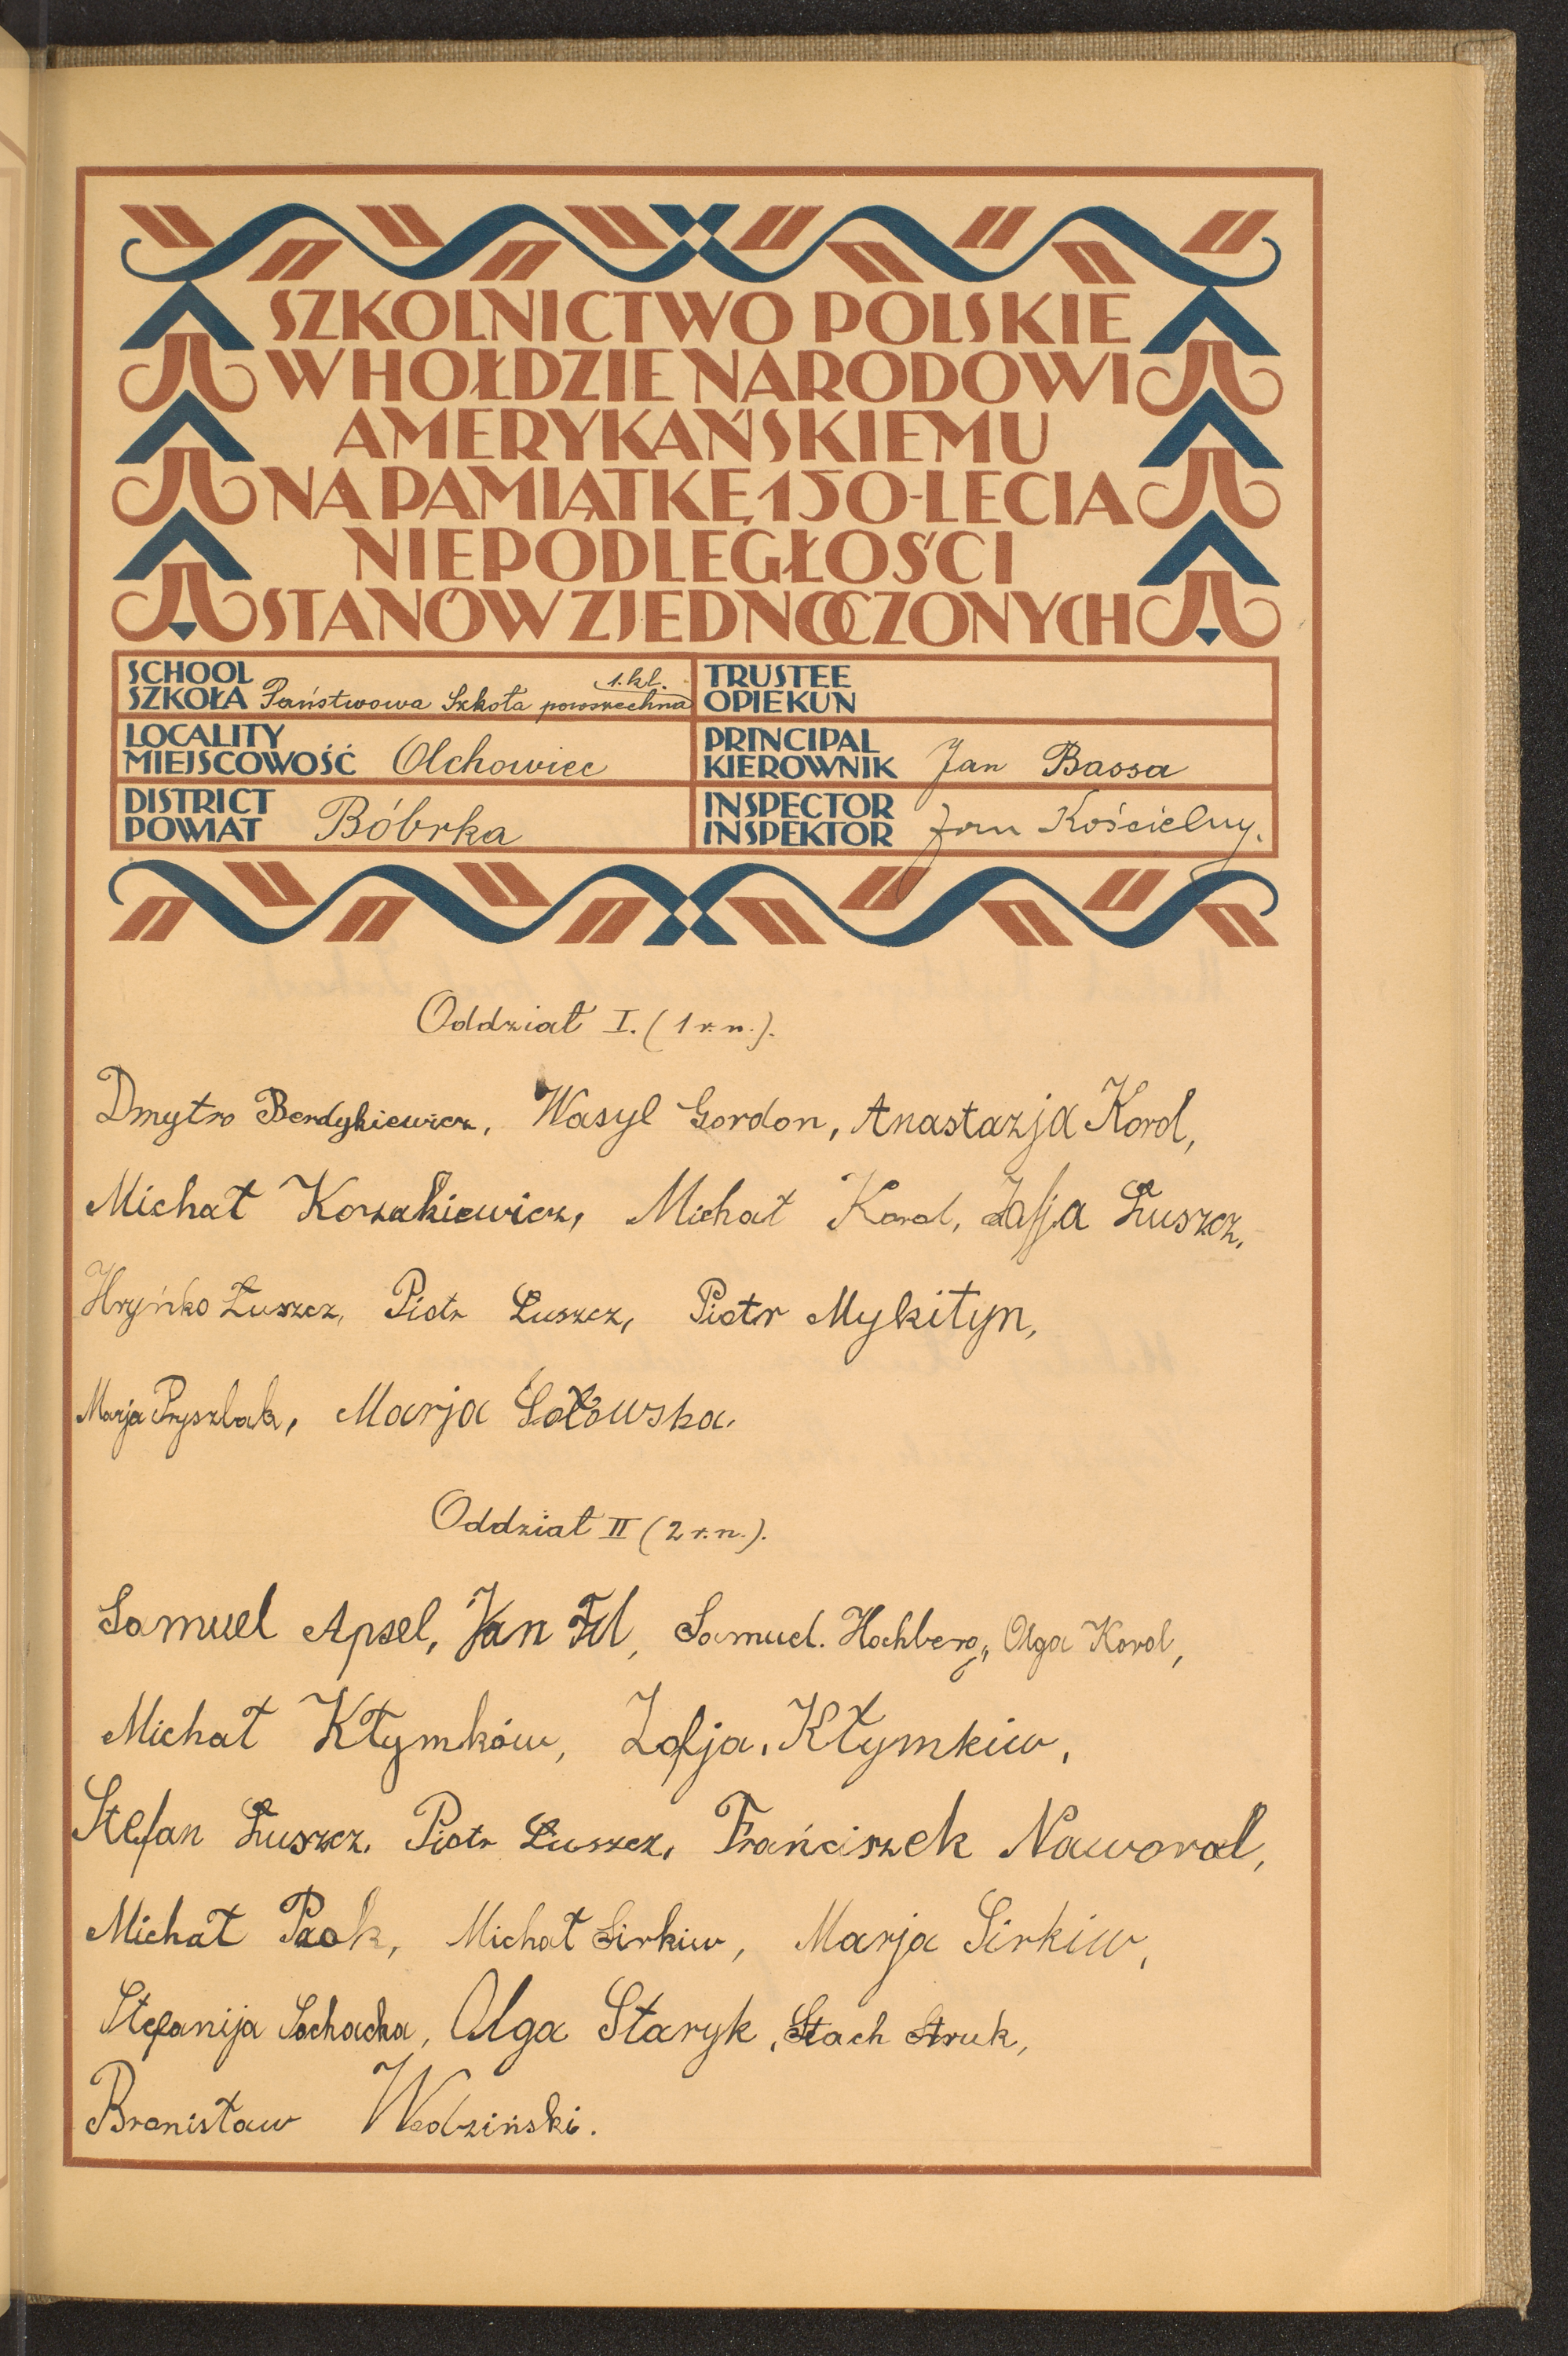 SZKOLNICTWO POLSKIE
W HOŁDZIE NARODOWI
AMERYKAŃSKIEMU
NA PAMIĄTKĘ 150-LECIA
NIEPODLEGŁOŚCI
STANÓW ZJEDNOCZONYCH
SCHOOL
SZKOŁA Państwowa Szkoła powszechna 1. kl.
TRUSTEE
OPIEKUN
LOCALITY
MIEJSCOWOŚĆ Olchowiec
PRINCIPAL
KIEROWNIK Jan Bassa
DISTRICT
POWIAT Bóbrka
INSPECTOR
INSPEKTOR Jan Kościelny.
Oddział I. (1 r. n.).
Dmytro Berdykiewicz, Wasyl Gordon, Anastazja Korol,
Michał Korzakiewicz, Michał Korol, Zofja Łuszcz,
Hryńko Łuszcz, Piotr Łuszcz, Piotr Mykityn,
Marja Pryszlak, Marja Sołowska.
Oddział II (2 r. n.).
Samuel Apsel, Jan Fil, Samuel. Hochberg, Olga Korol,
Michał Kłymków, Zofja, Kłymkiw,
Stefan Łuszcz, Piotr Łuszcz, Frańciszek Naworol,
Michał Psok, Michał Sirkiw, Marja Sirkiw,
Stefanija Sochacka, Olga Staryk, Stach Struk,
Bronisław Wodziński.